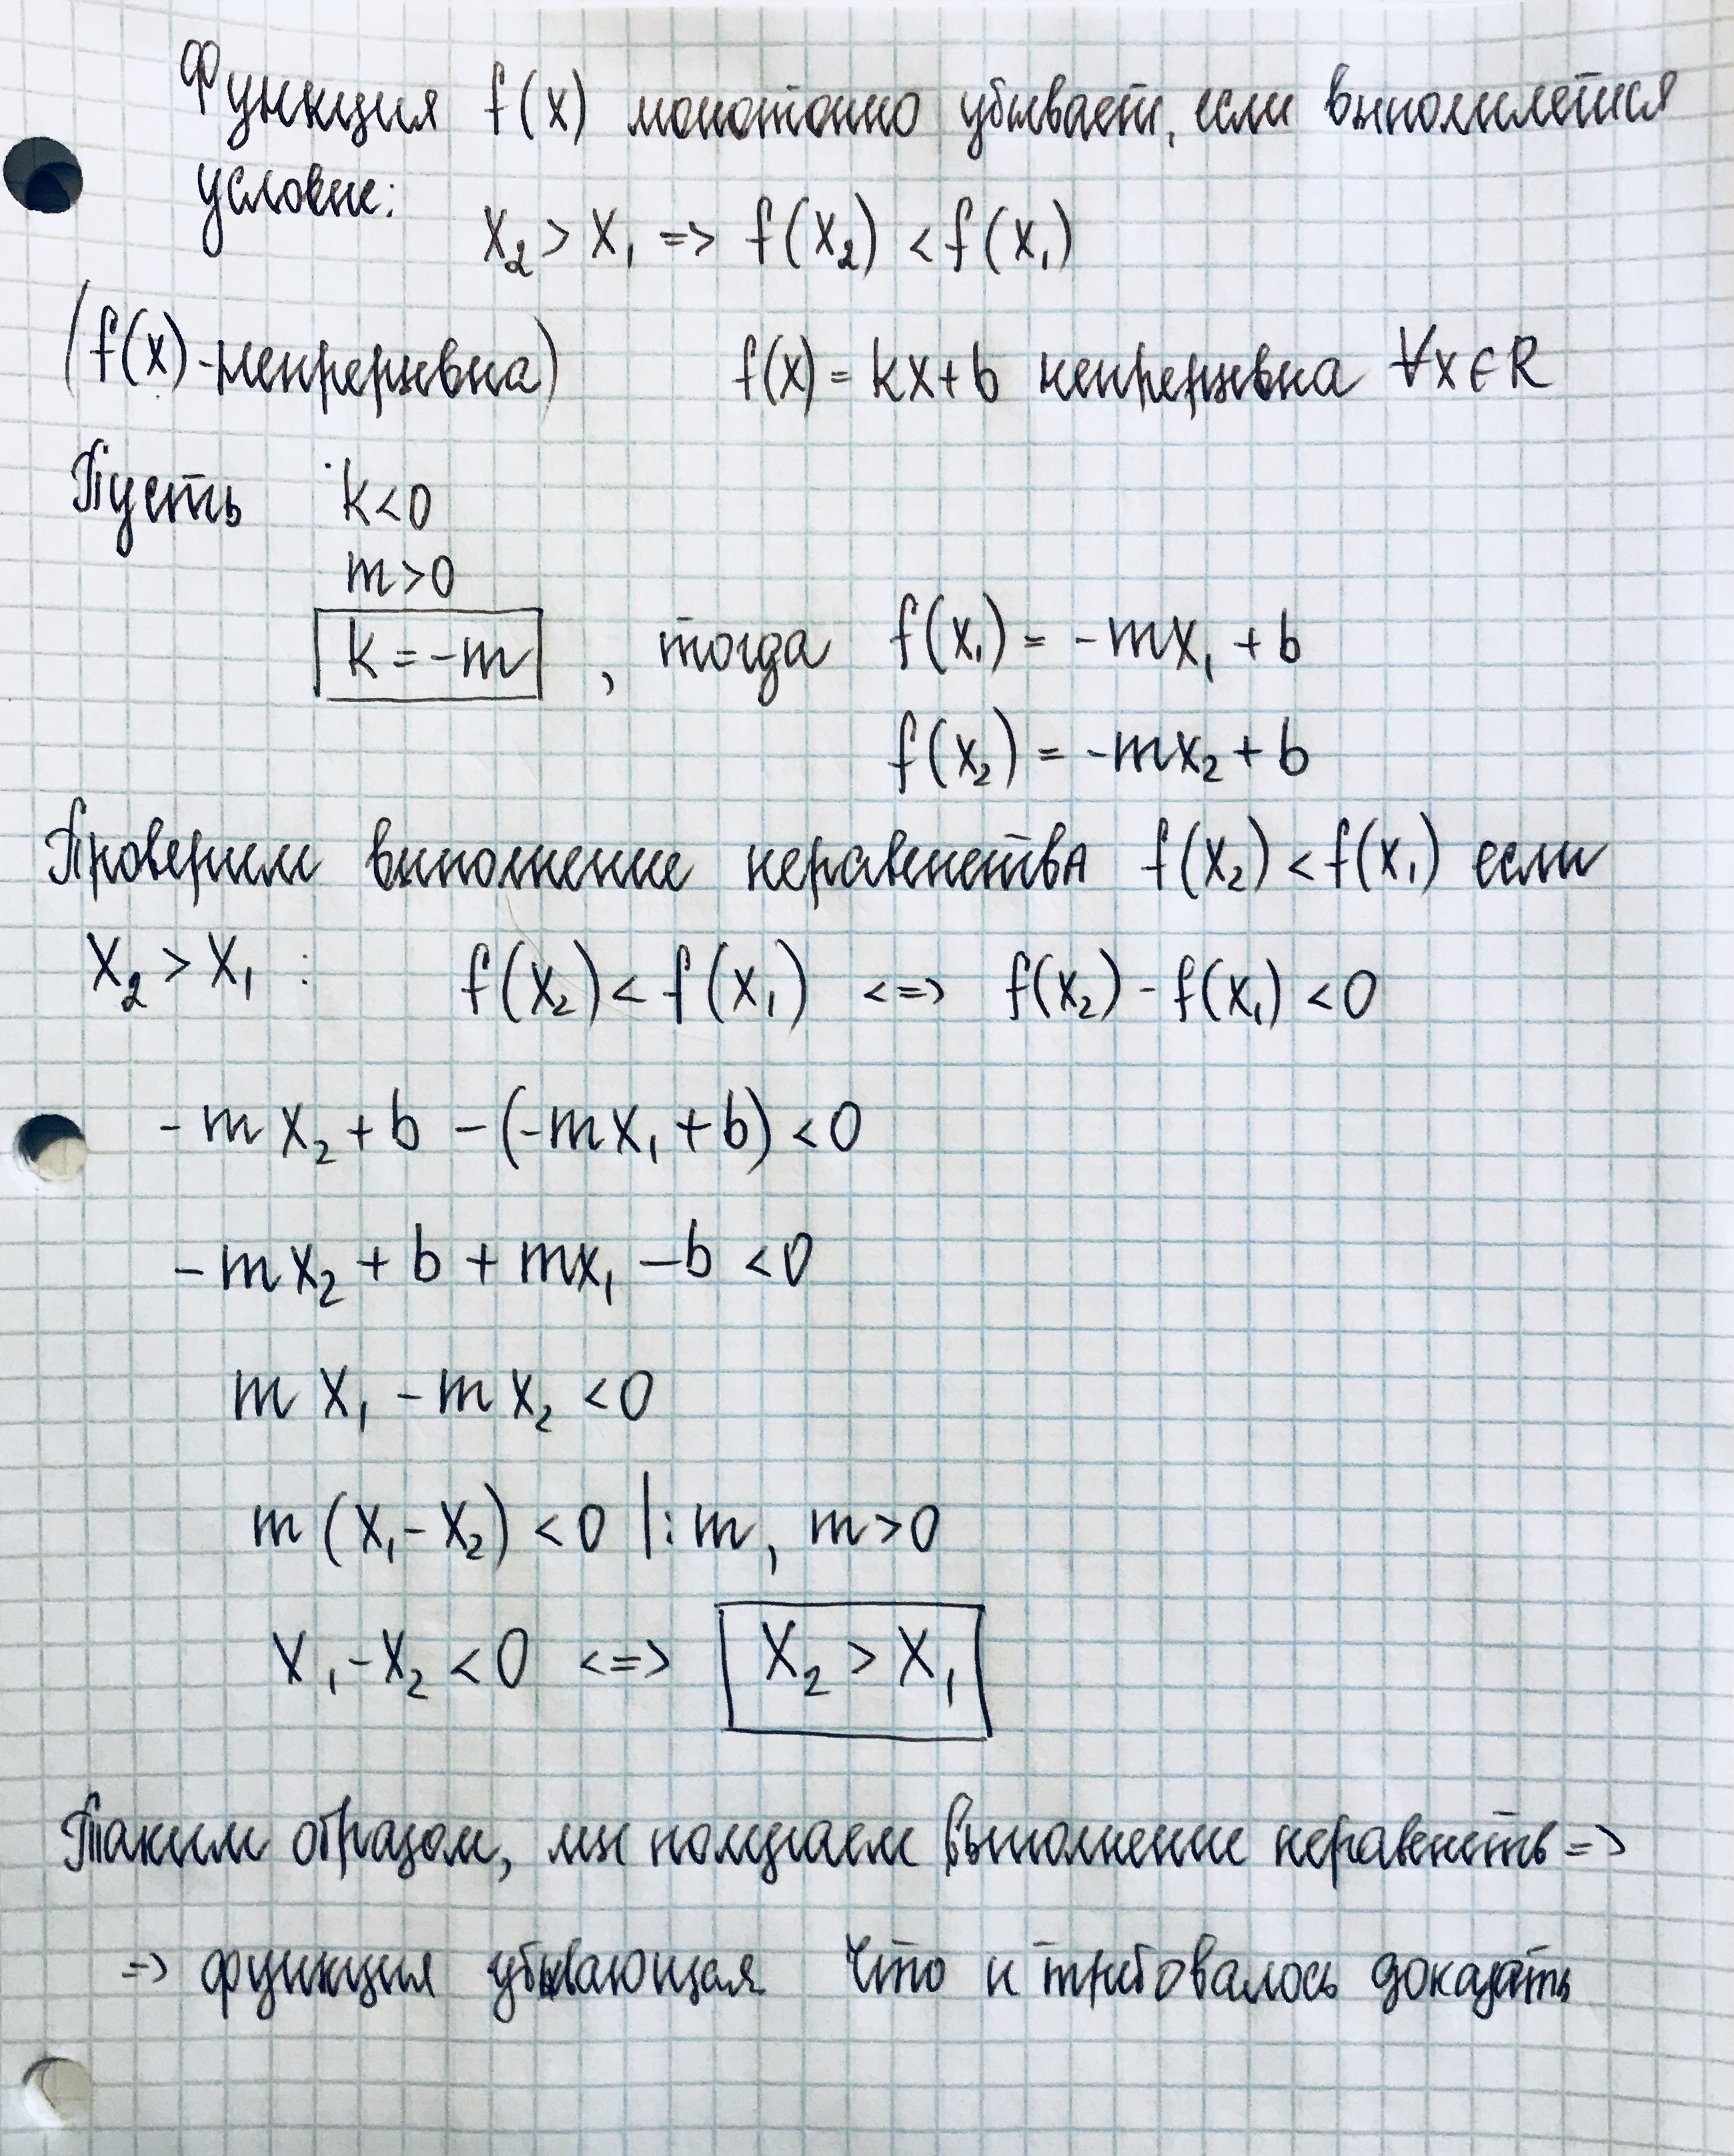 Функция f(x) монотонно убывает, если выполняется
условие:
x₂ > x₁ => f(x₂) < f(x₁)
(f(x)-непрерывна) f(x) = kx+b непрерывна ∀x∈R
Пусть k<0
m>0
k=-m , тогда f(x₁) = -mx₁ + b
f(x₂) = -mx₂ + b
Проверим выполнение неравенства f(x₂) < f(x₁) если
x₂ > x₁ : f(x₂) < f(x₁) <=> f(x₂) - f(x₁) < 0
-mx₂ + b - (-mx₁ + b) < 0
-mx₂ + b + mx₁ - b < 0
mx₁ - mx₂ < 0
m(x₁-x₂) < 0 |:m, m>0
x₁-x₂ < 0 <=> x₂ > x₁
Таким образом, мы получаем выполнение неравенств =>
=> функция убывающая Что и требовалось доказать